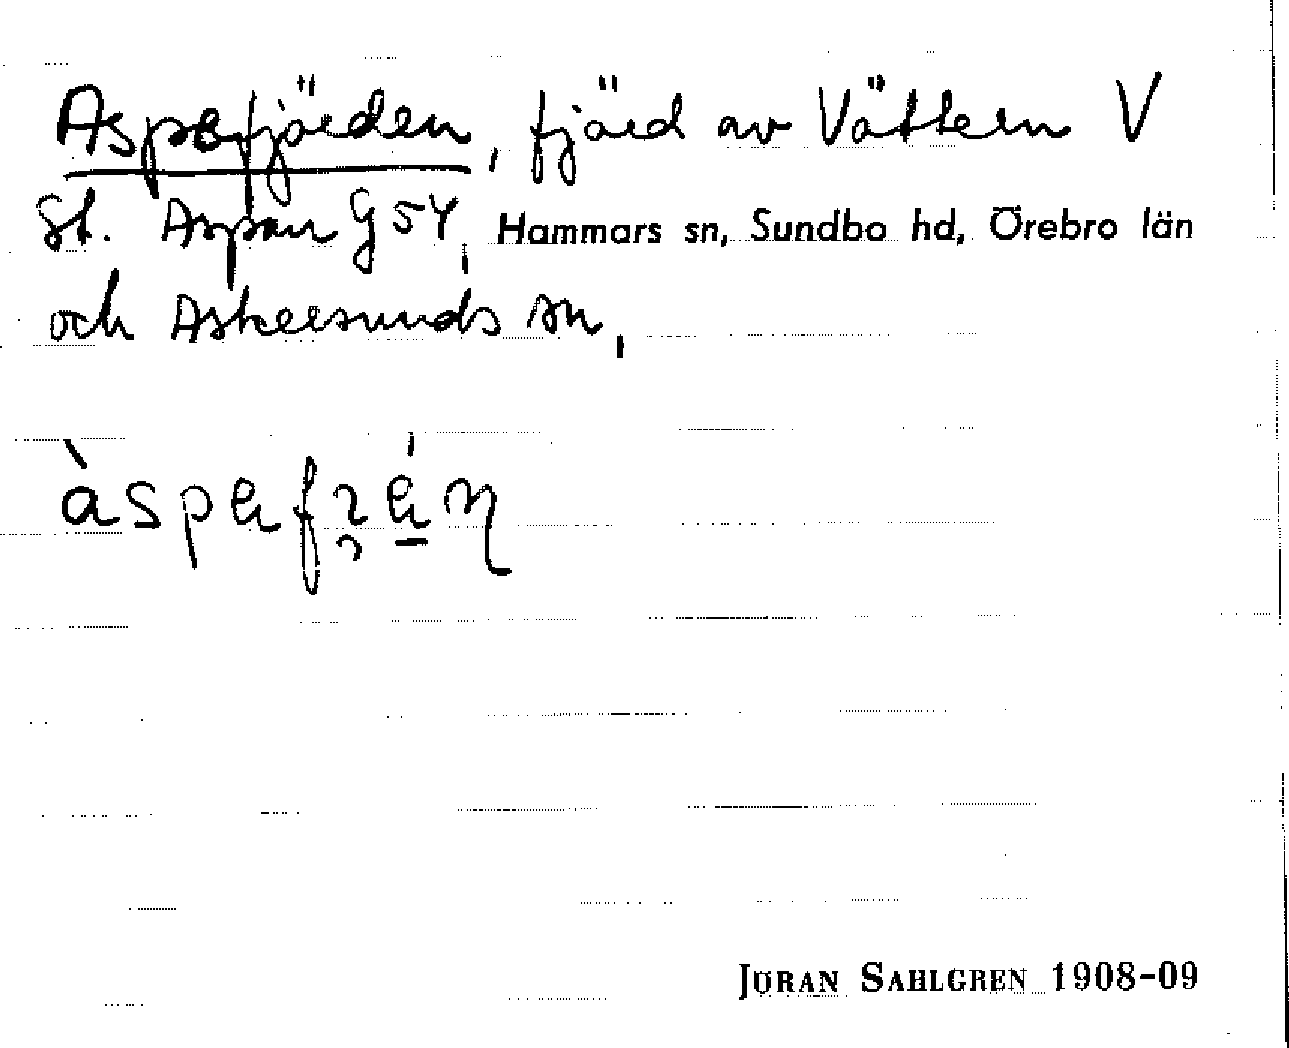 Aspefjärden, fjärd av Vättern V
St. Aspan G 54, Hammars sn, Sundbo hd, Örebro län
och Askersunds sn,
JÖRAN SAHLGREN 1908-09